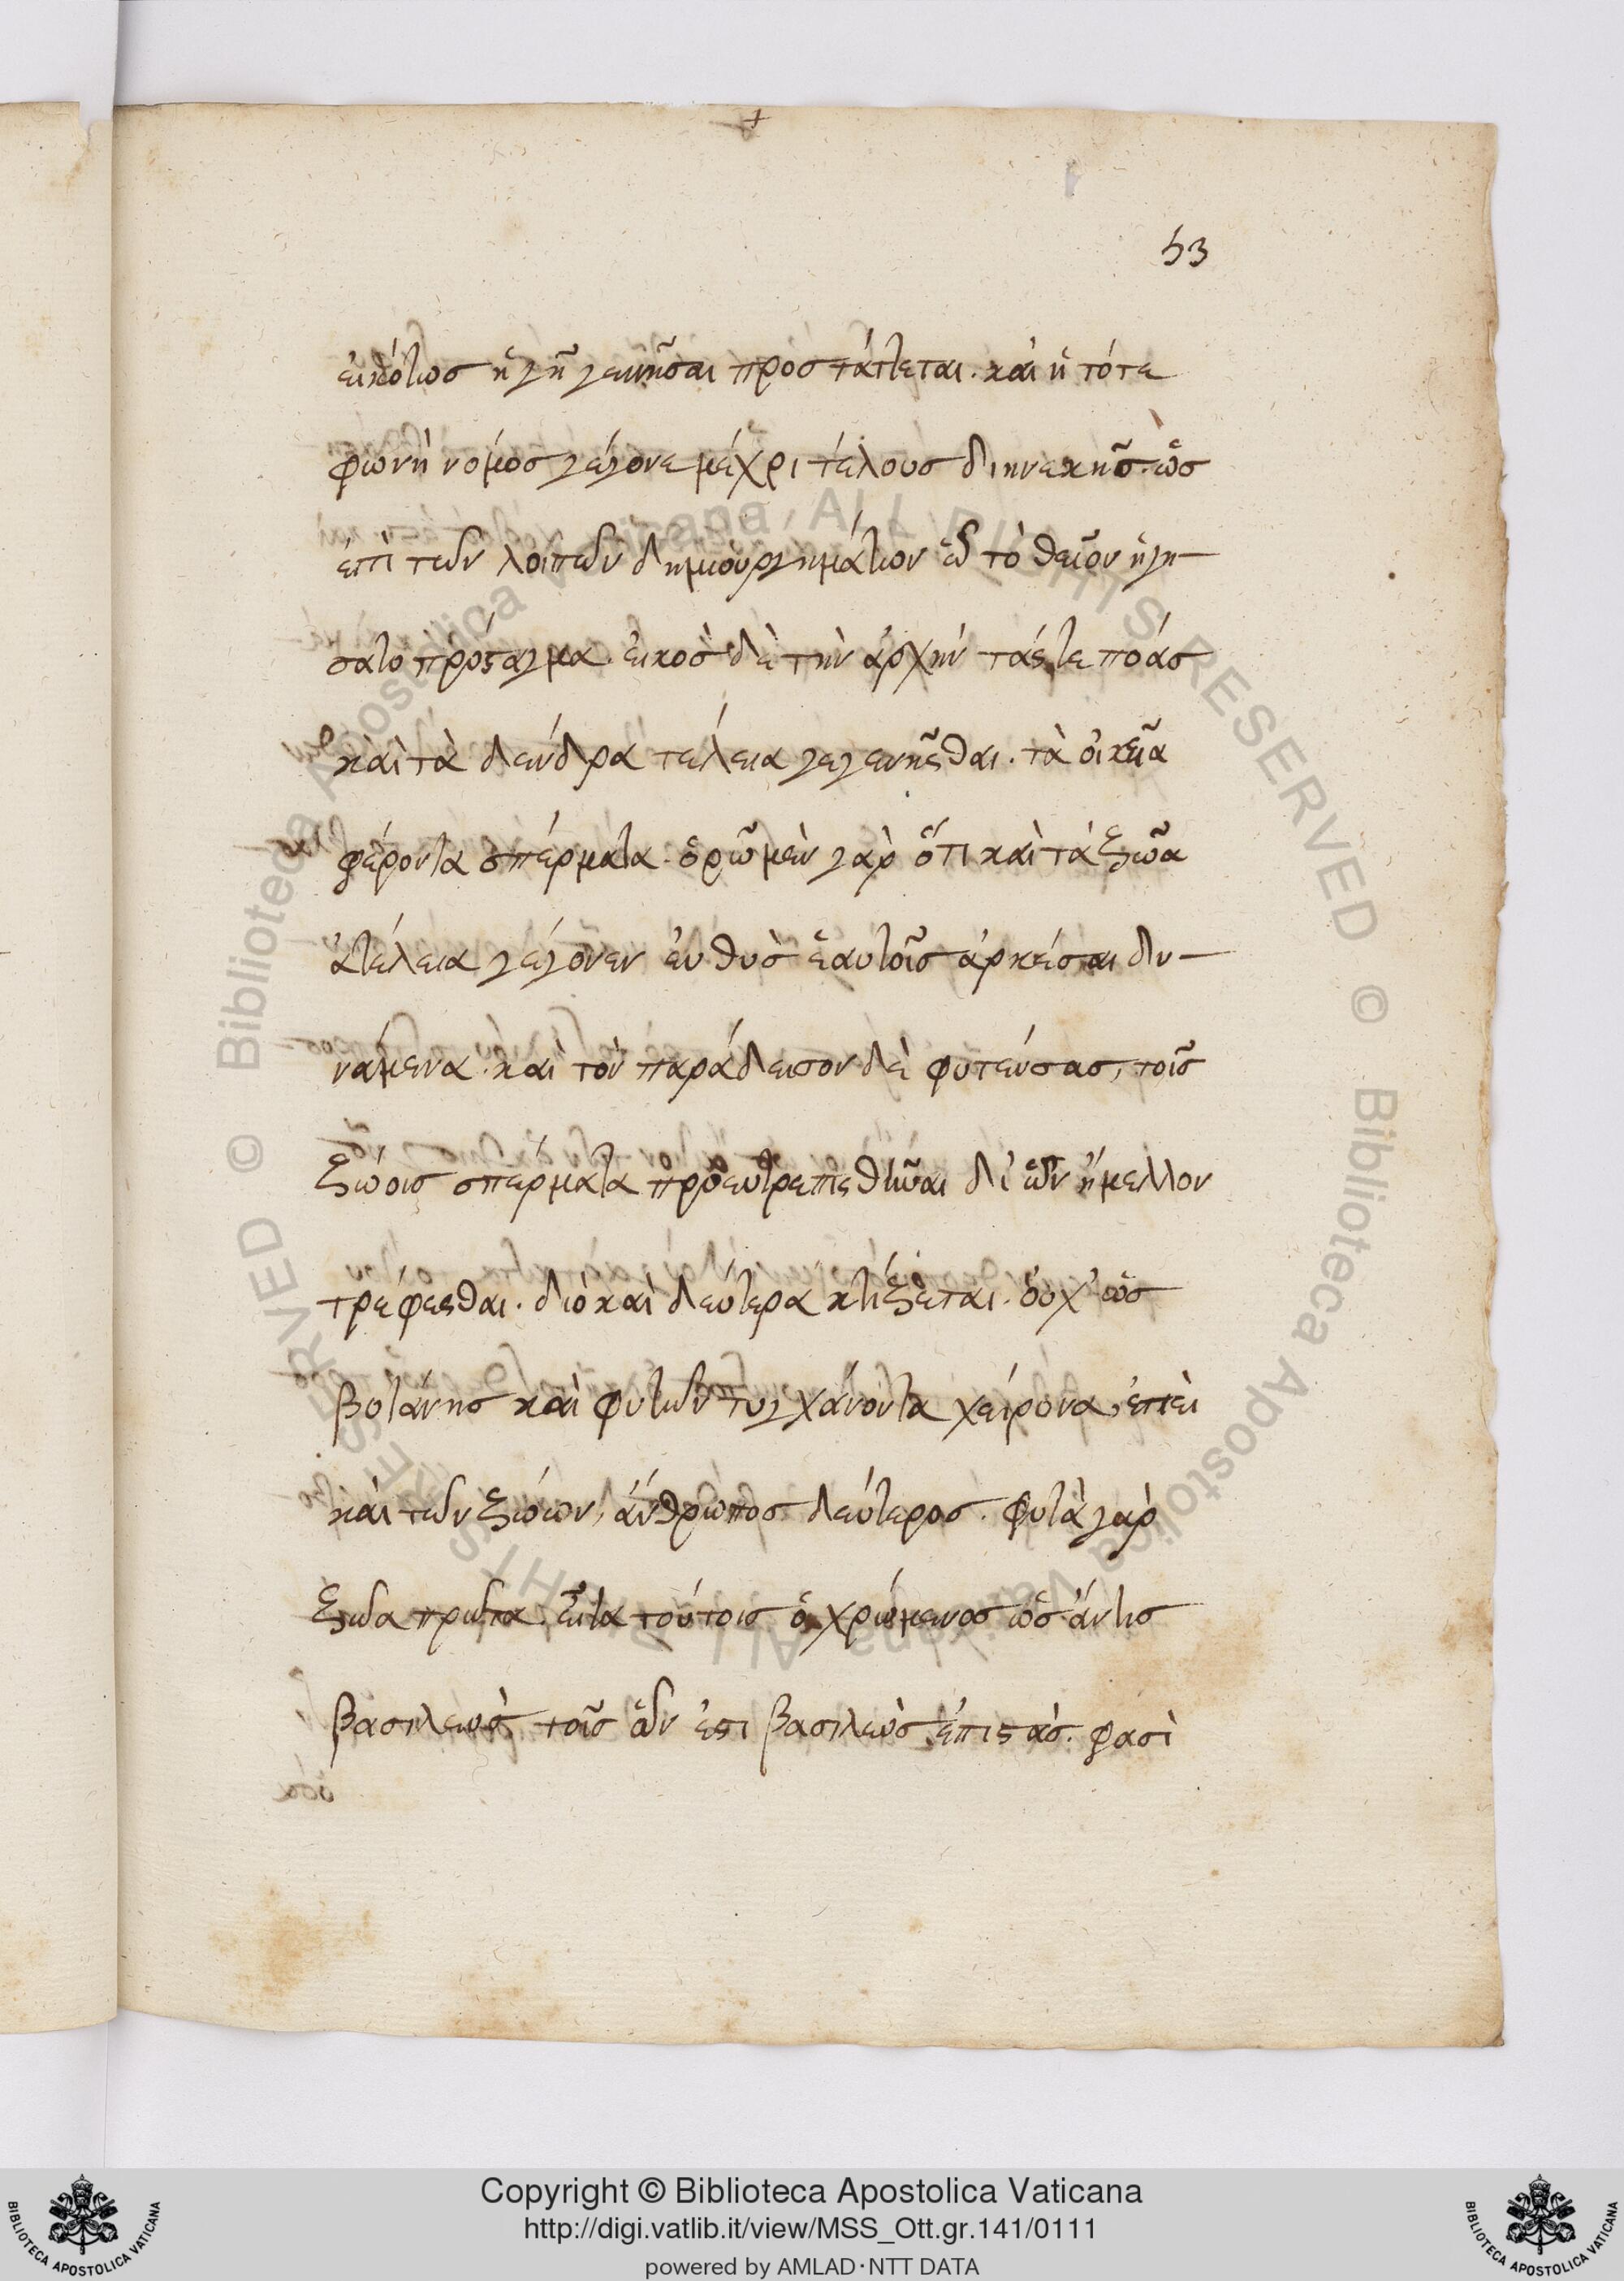 53
εἰκότως ἡ γῆ γεννῆσαι προστάττεται. καὶ ἡ τότε
φωνὴ νόμος γέγονε μέχρι τέλους διηνεκής. ὡς
ἐπὶ τῶν λοιπῶν δημιουργημάτων τὸ θεῖον ἡγή–
σατο πρόσταγμα. εἰκὸς δὲ τὴν ἀρχὴν τάς τε πόας
καὶ τὰ δένδρα τέλεια γεγενῆσθαι. τὰ οἰκεῖα
φέροντα σπέρματα. ὁρῶμεν γὰρ ὅτι καὶ τὰ ζῶα
ἀτέλεια γέγονεν εὐθὺς ἑαυτοῖς ἀρκέσαι δυ–
νάμενα. καὶ τὸν παράδεισον δὲ φυτεύσας, τοῖς
ζώοις σπέρματα προευτρεπισθῆναι δι' ὧν ἤμελλον
τρέφεσθαι. διὸ καὶ δεύτερα κτίζεται. οὐχ' ὡς
βοτάνης καὶ φυτῶν τυγχάνοντα χείρονα, ἐπεὶ
καὶ τῶν ζώων, ἄνθρωπος δεύτερος. φυτὰ γὰρ
ζῶα πρῶτα. εἶτα τούτοις ὁ χρώμενος ὡς ἄν τις
βασιλεὺς τοῖς ὧν ἐστι βασιλεὺς ἐπιστάς. φασὶ
Copyright © Biblioteca Apostolica Vaticana
http://digi.vatlib.it/view/MSS_Ott.gr.141/0111
powered by AMLAD·NTT DATA